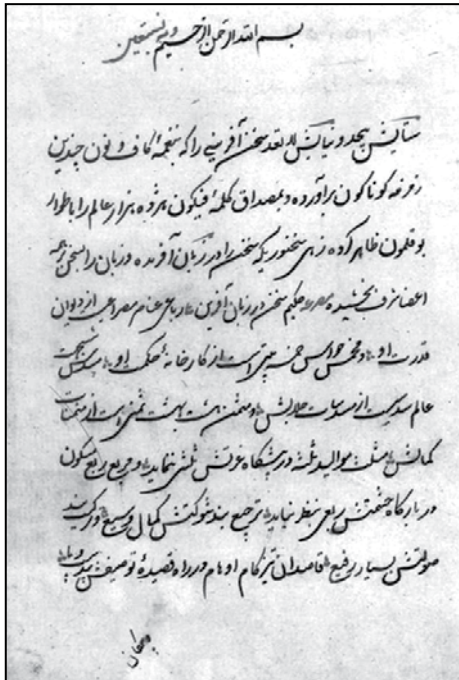 بسم الله الرحمن الرحیم وبه نستعین
ستایش بیحد و نیایش لا تعد سخن آفرینی را که بنغمهٔ کاف و نون چندین
زمزمه کوناکون برآورده و بمصداق کلمهٔ فیکون هژده هزار عالم را باطوار
بوقلمون ظاهر کرده زهی سخنوریکه سخن را در زبان آفریده و زبان را بسخن بر همه
اعضا شرف بخشیده مصرعه حکیم سخن در زبان آفرین رباعی عناصر مصراعی از دیوان
قدرت او و مخمس حواس خمسه بیتی است از کارخانهٔ حکمت او مسدس شش جهت
عالم مسدسیست از مسدسات جلالش و مثمن هشت بهشت مثمنی است از مثمنات
کمالش مثلث موالید ثلثه در پیشگاه عزتش ثلثی ننماید و مربع ربع مسکون
در بارکاه حشمتش ربعی بنظر نیاید ترجیع بند شوکتش کمال وسیع و ترکیب بند
صولتش بسیار رفیع قاصدان تیزکام اوهام در راه قصیدهٔ توصیفش